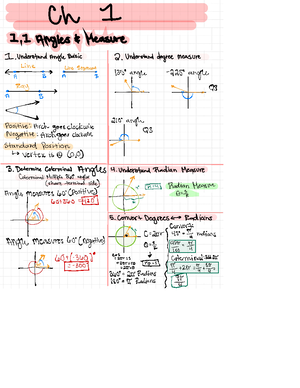 Ch 1
1.1 Angles & Measure
1. Understand Angle Basics
Line
Line Segment
A B
A B
Ray
A B
Positive: Arch goes clockwise
Negative: Arch goes clockwise
Standard Position
↳ vertex is @ (0,0)
2. Understand degree measure
135° angle
-225° angle
Q3
210° angle
Q3
3. Determine Coterminal Angles
Coterminal: Multiple 360° angles
(share terminal side)
Angle Measures 60° (positive)
60+360=420°
Angle Measures 60° (negative)
60+(-360)°
=-300
4. Understand Radian Measure
Radian Measure
5. Convert Degrees ↔ Radians
C=2πr
Convert:
45° radians
Coterminal:
360° = 2π Radians
180° = π Radians